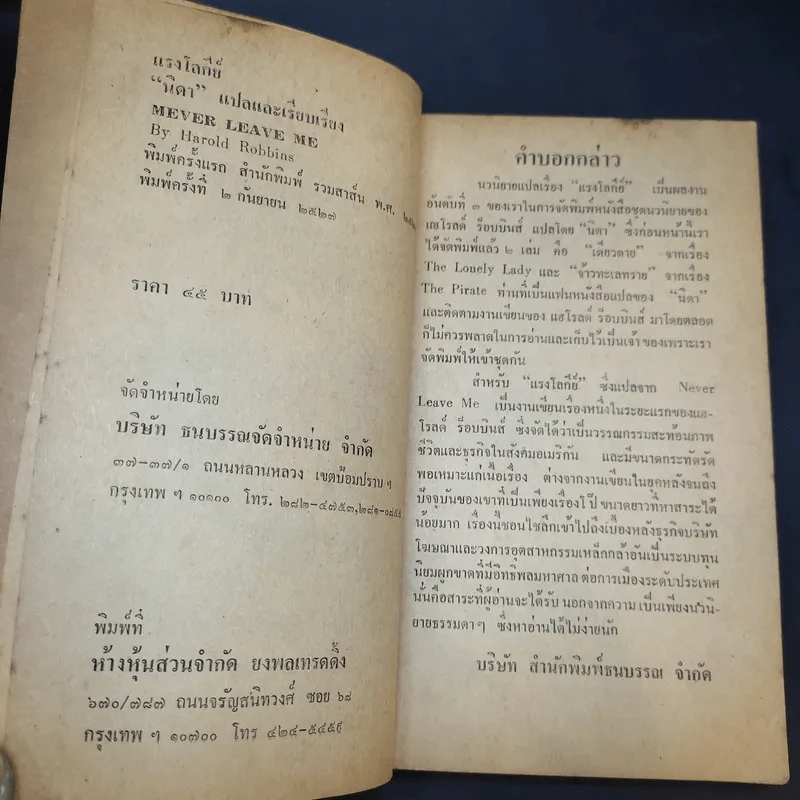 แรงโลกีย์
“นิดา” แปลและเรียบเรียง
MEVER LEAVE ME
By Harold Robbins
พิมพ์ครั้งแรก สำนักพิมพ์ รวมสาส์น พ.ศ.
พิมพ์ครั้งที่ ๒ กันยายน ๒๕๒๗
ราคา ๔๕ บาท
จัดจำหน่ายโดย
บริษัท ธนบรรณจัดจำหน่าย จำกัด
๓๗-๓๗/๑ ถนนหลานหลวง เขตป้อมปราบ ฯ
กรุงเทพ ฯ ๑๐๑๐๐ โทร. ๒๘๒-๔๗๕๓,๒๘๑-๐๘๕๕
พิมพ์ที่
ห้างหุ้นส่วนจำกัด ยงพลเทรดดิ้ง
๖๗๐/๗๘๗ ถนนจรัญสนิทวงศ์ ซอย ๖๘
กรุงเทพ ฯ ๑๐๗๐๐ โทร ๔๒๔-๕๔๕๙
คำบอกกล่าว
นวนิยายแปลเรื่อง “แรงโลกีย์” เป็นผลงาน
อันดับที่ ๓ ของเราในการจัดพิมพ์หนังสือชุดนวนิยายของ
แฮโรลด์ ร็อบบินส์ แปลโดย “นิดา” ซึ่งก่อนหน้านี้เรา
ได้จัดพิมพ์แล้ว ๒ เล่ม คือ “เดียวดาย” จากเรื่อง
The Lonely Lady และ “จ้าวทะเลทราย” จากเรื่อง
The Pirate ท่านที่เป็นแฟนหนังสือแปลของ “นิดา”
และติดตามงานเขียนของ แฮโรลด์ ร็อบบินส์ มาโดยตลอด
ก็ไม่ควรพลาดในการอ่านและเก็บไว้เป็นเจ้าของเพราะเรา
จัดพิมพ์ให้เข้าชุดกัน
สำหรับ “แรงโลกีย์” ซึ่งแปลจาก Never
Leave Me เป็นงานเขียนเรื่องหนึ่งในระยะแรกของแฮ-
โรลด์ ร็อบบินส์ ซึ่งจัดได้ว่าเป็นวรรณกรรมสะท้อนภาพ
ชีวิตและธุรกิจในสังคมอเมริกัน และมีขนาดกระทัดรัด
พอเหมาะแก่เนื้อเรื่อง ต่างจากงานเขียนในยุคหลังจนถึง
ปัจจุบันของเขาที่เป็นเพียงเรื่องโป๊ ขนาดยาวที่หาสาระได้
น้อยมาก เรื่องนี้ชอนไชลึกเข้าไปถึงเบื้องหลังธุรกิจบริษัท
โฆษณาและวงการอุตสาหกรรมเหล็กกล้าอันเป็นระบบทุน
นิยมผูกขาดที่มีอิทธิพลมหาศาล ต่อการเมืองระดับประเทศ
นั่นคือสาระที่ผู้อ่านจะได้รับ นอกจากความ เป็นเพียงนวนิ-
ยายธรรมดา ๆ ซึ่งหาอ่านได้ไม่ง่ายนัก
บริษัท สำนักพิมพ์ธนบรรณ จำกัด